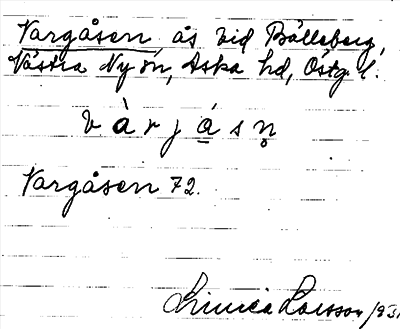 Vargåsen ås vid Bålleberg,
Västra Ny sn, Aska hd, Östg. l.
v à r j å s n̥
Vargåsen 72.
Linnéa Larsson 1931